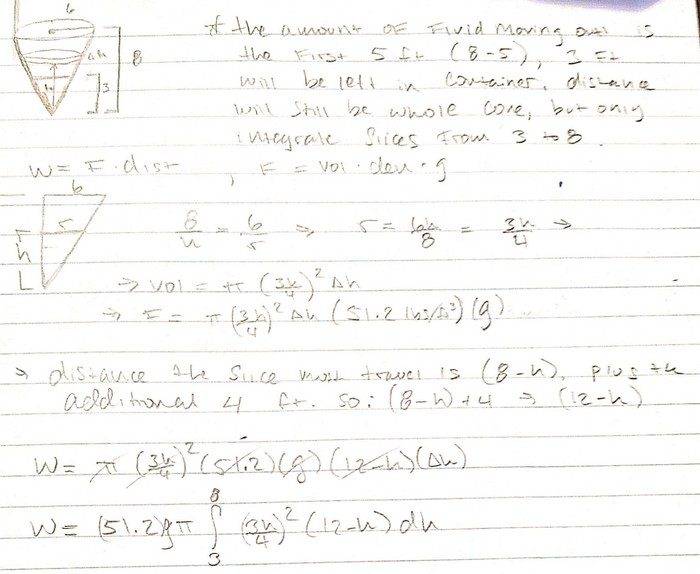 6
Δh
8
h
3
* the amount of Fluid moving out is
the First 5 ft (8-5), 3 ft
will be left in container. distance
will still be whole cone, but only
integrate slices from 3 to 8.
W = F · dist , F = vol · den · g
6
r
h
8/h = 6/r ⇒ r = 6h/8 = 3h/4 ⇒
⇒ vol = π (3h/4)² Δh
⇒ F = π (3h/4)² Δh (51.2 lbs/ft³) (g)
⇒ distance the slice must travel is (8-h), plus the
additional 4 ft. so: (8-h)+4 ⇒ (12-h)
W = π (3h/4)² (51.2) (g) (12-h) (Δh)
W = (51.2)gπ ∫₃⁸ (3h/4)² (12-h) dh